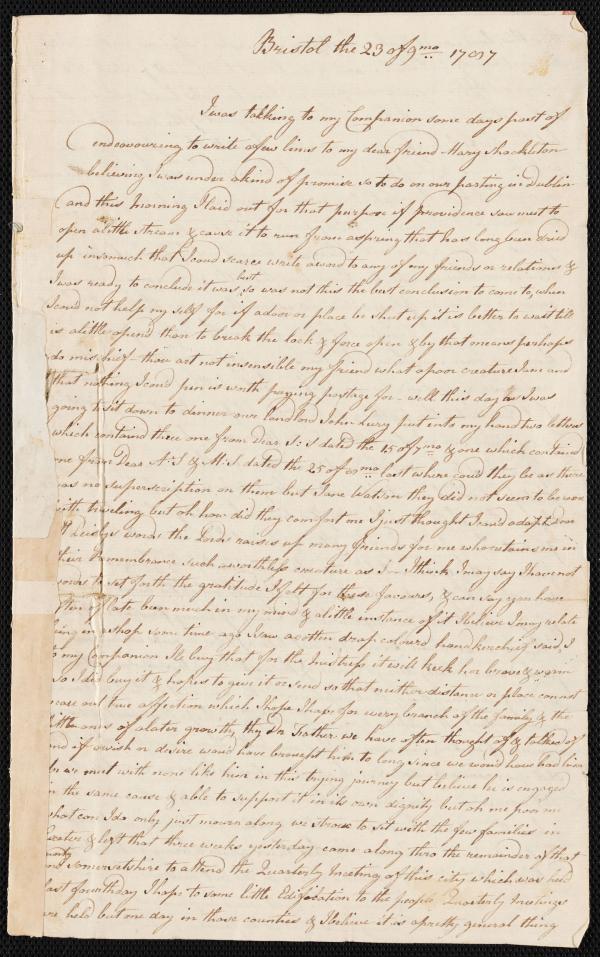 Bristol the 23 of 9mo 1787
I was talking to my Companion some days past of
endeavouring to write a few lines to my dear friend Mary Shackleton
believing I was under a kind of promise so to do on our parting in Dublin
and this morning I laid out for that purpose if providence saw meet to
open a little stream & cause it to run from a spring that has long been dried
up insomuch that I coud scarce write a word to any of my friends or relations &
I was ready to conclude it was best so was not this the best conclusion to come to, when
I coud not help my self for if a door or place be shut up it is better to wait till
is a little opend than to break the lock & force open & by that means perhaps
do mischief - thou art not insensible my friend what a poor creature I am and
that nothing I coud pen is worth paying postage for - well this day as I was
going to sit down to dinner our landlord John Lury put into my hand two letters
which containd three one from Dear S:S dated the 15 of 7mo & one which containd
one from Dear A:S & M:S. dated the 25 of mo last where coud they be as there
was no superscription on them but Jane Watson they did not seem to be wore
with traveling but oh how did they comfort me I just thought I coud adopt one
words the Lords raises up many friends for me who retains me in
their remembrance such a worthless creature as I - I think I may say I have not
words to set forth the gratitude I felt for these favours, & can say you have
often of late been much in my mind & a little instance of it I believe I may relate
being in a shop some time ago I saw a cotten drap colourd handkerchief said I
to my Companion Ile buy that for the mistress it will keek her brave & warm
so I did buy it & hopes to give it or send so that neither distance or place can not
out true affection which I hope I have for every branch of the family & the
little ones of a later growth, thy Dr Father we have often thought of & talked of
and if a wish or desire woud have brought him to long since we woud have had him
we met with none like him in this trying journey but believe he is engaged
in the same cause & able to support it in its own dignity but oh me poor me
what can I do only just mourn along we strove to sit with the few families in
Exeter & left that three weeks yesterday came along thro the remainder of that
county and Somersetshire to attend the Quarterly Meeting of this city which was held
last fourthday I hope to some little Edification to the people Quarterly Meetings
are held but one day in those counties & I believe it is a pretty general thing